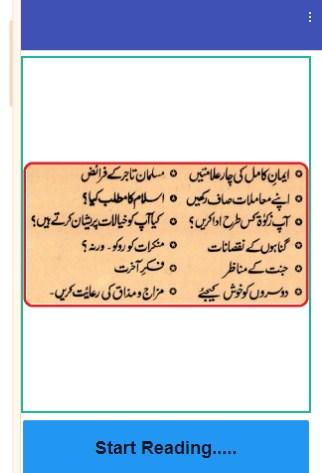 ایمانِ کامل کی چار علامتیں ✪ مسلمان تاجر کے فرائض
اپنے معاملات صاف رکھیں ✪ اسلام کا مطلب کیا؟
آپ زکوٰۃ کس طرح ادا کریں؟ ✪ کیا آپ کو خیالات پریشان کرتے ہیں؟
گناہوں کے نقصانات ✪ منکرات کو روکو۔ ورنہ؟
جنت کے مناظر ✪ فکرِ آخرت
دوسروں کو خوش کیجئے ✪ مزاج و مذاق کی رعایت کریں۔
Start Reading.....